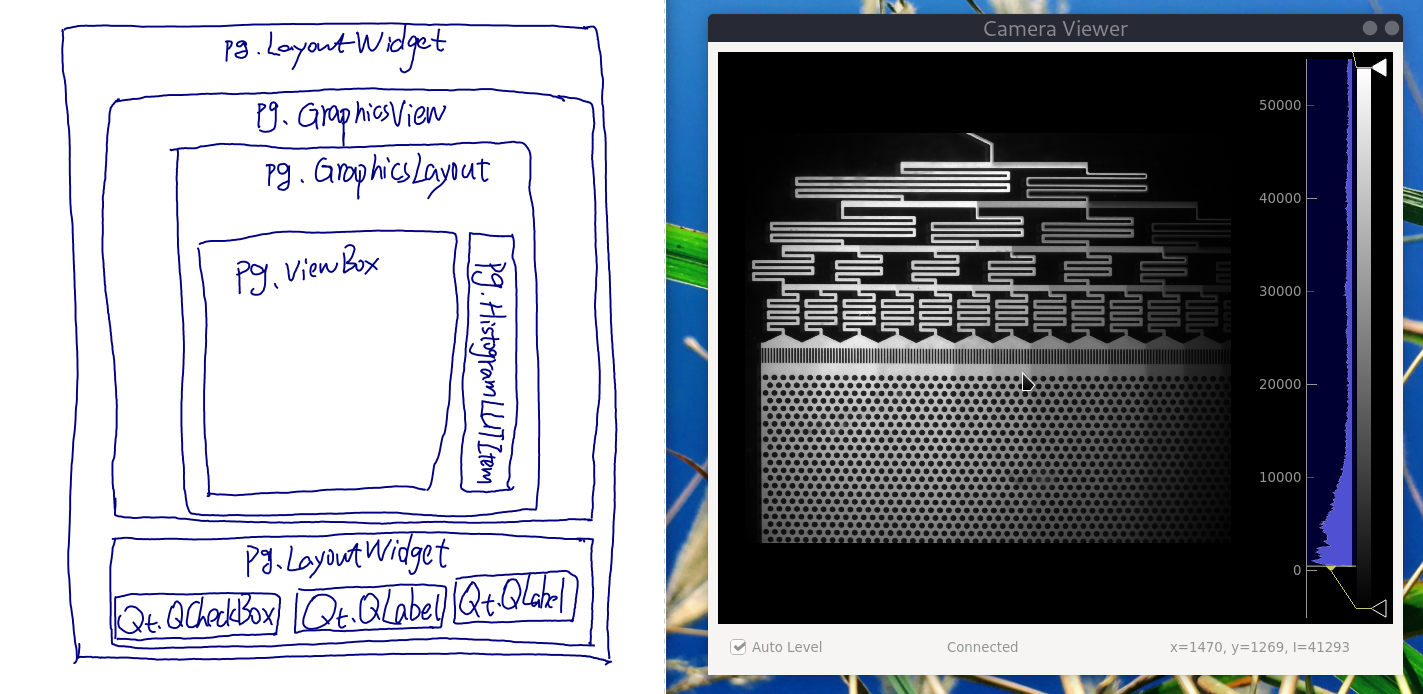 pg.LayoutWidget
pg.GraphicsView
pg.GraphicsLayout
pg.ViewBox
pg.HistogramLUTItem
pg.LayoutWidget
Qt.QCheckBox
Qt.QLabel
Qt.QLabel
Camera Viewer
50000
40000
30000
20000
10000
0
Auto Level
Connected
x=1470, y=1269, I=41293